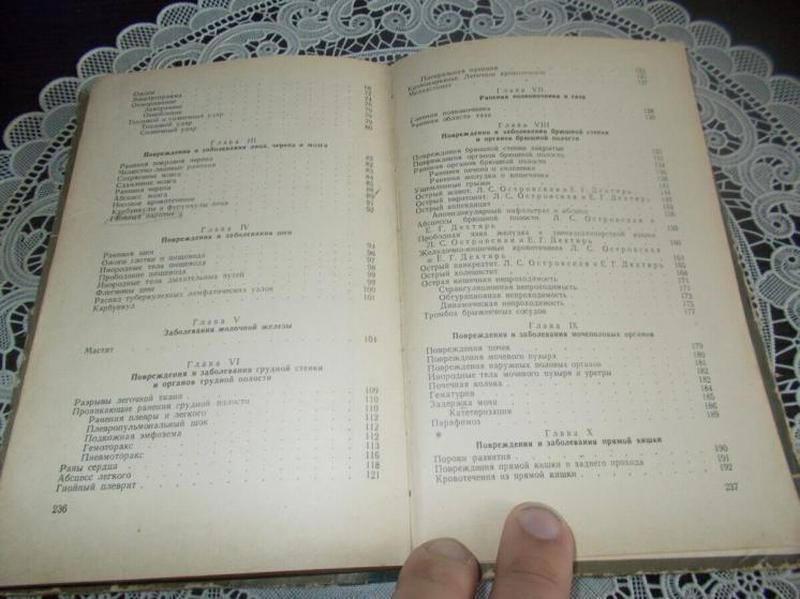 Ожоги 68
Электротравма 72
Отморожение 74
Замерзание 79
Ознобление 79
Тепловой и солнечный удар 79
Тепловой удар 79
Солнечный удар 80
Глава III
Повреждения и заболевания лица, черепа и мозга
Ранения покровов черепа 82
Челюстно-лицевые ранения 82
Сотрясение мозга 84
Сдавление мозга 85
Ранения черепа 88
Абсцесс мозга 89
Носовое кровотечение
Карбункулы и фурункулы лица 91
Гнойный паротит 92
Глава IV
Повреждения и заболевания шеи
Ранения шеи 94
Ожоги глотки и пищевода 96
Инородные тела пищевода 98
Прободение пищевода 99
Инородные тела дыхательных путей 99
Флегмоны шеи 100
Распад туберкулезных лимфатических узлов 101
Карбункул
Глава V
Заболевания молочной железы
Мастит 104
Глава VI
Повреждения и заболевания грудной стенки
и органов грудной полости
Разрывы легочной ткани 109
Проникающие ранения грудной полости 110
Ранения плевры и легкого 110
Плевропульмональный шок 112
Подкожная эмфизема 112
Гемоторакс 112
Пневмоторакс 113
Раны сердца 116
Абсцесс легкого 118
Гнойный плеврит 121
236
Глава VII
Ранения позвоночника и таза
Ранения позвоночника
Ранения области таза
Глава VIII
Повреждения и заболевания брюшной стенки
и органов брюшной полости
Повреждения брюшной стенки закрытые
Повреждения органов брюшной полости
Ранения органов брюшной полости
Ранения печени и селезенки
Ранения желудка и кишечника
Ущемленные грыжи
Острый живот. Л. С. Островская и Е. Г. Дехтярь
Острый перитонит. Л. С. Островская и Е. Г. Дехтярь
Острый аппендицит
Аппендикулярный инфильтрат и абсцесс
Абсцессы брюшной полости. Л. С. Островская и
Е. Г. Дехтярь
Прободная язва желудка и двенадцатиперстной кишки
Л. С. Островская и Е. Г. Дехтярь
Желудочно-кишечные кровотечения Л. С. Островская
и Е. Г. Дехтярь
Острый панкреатит. Л. С. Островская и Е. Г. Дехтярь
Острый холецистит
Острая кишечная непроходимость
Странгуляционная непроходимость 171
Обтурационная непроходимость 173
Динамическая непроходимость 175
Тромбоз брыжеечных сосудов 177
Глава IX
Повреждения и заболевания мочеполовых органов
Повреждения почек 179
Повреждения мочевого пузыря 180
Повреждения наружных половых органов 181
Инородные тела мочевого пузыря и уретры 182
Почечная колика 182
Гематурия 184
Задержка мочи 185
Катетеризация 186
Парафимоз 189
Глава X
Повреждения и заболевания прямой кишки
Пороки развития 190
Повреждения прямой кишки и заднего прохода 191
Кровотечения из прямой кишки 192
237